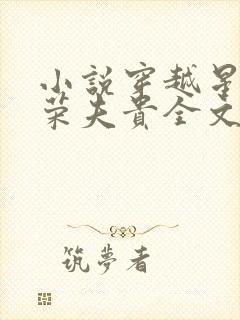 小說穿越星
榮夫貴全文
筑夢者